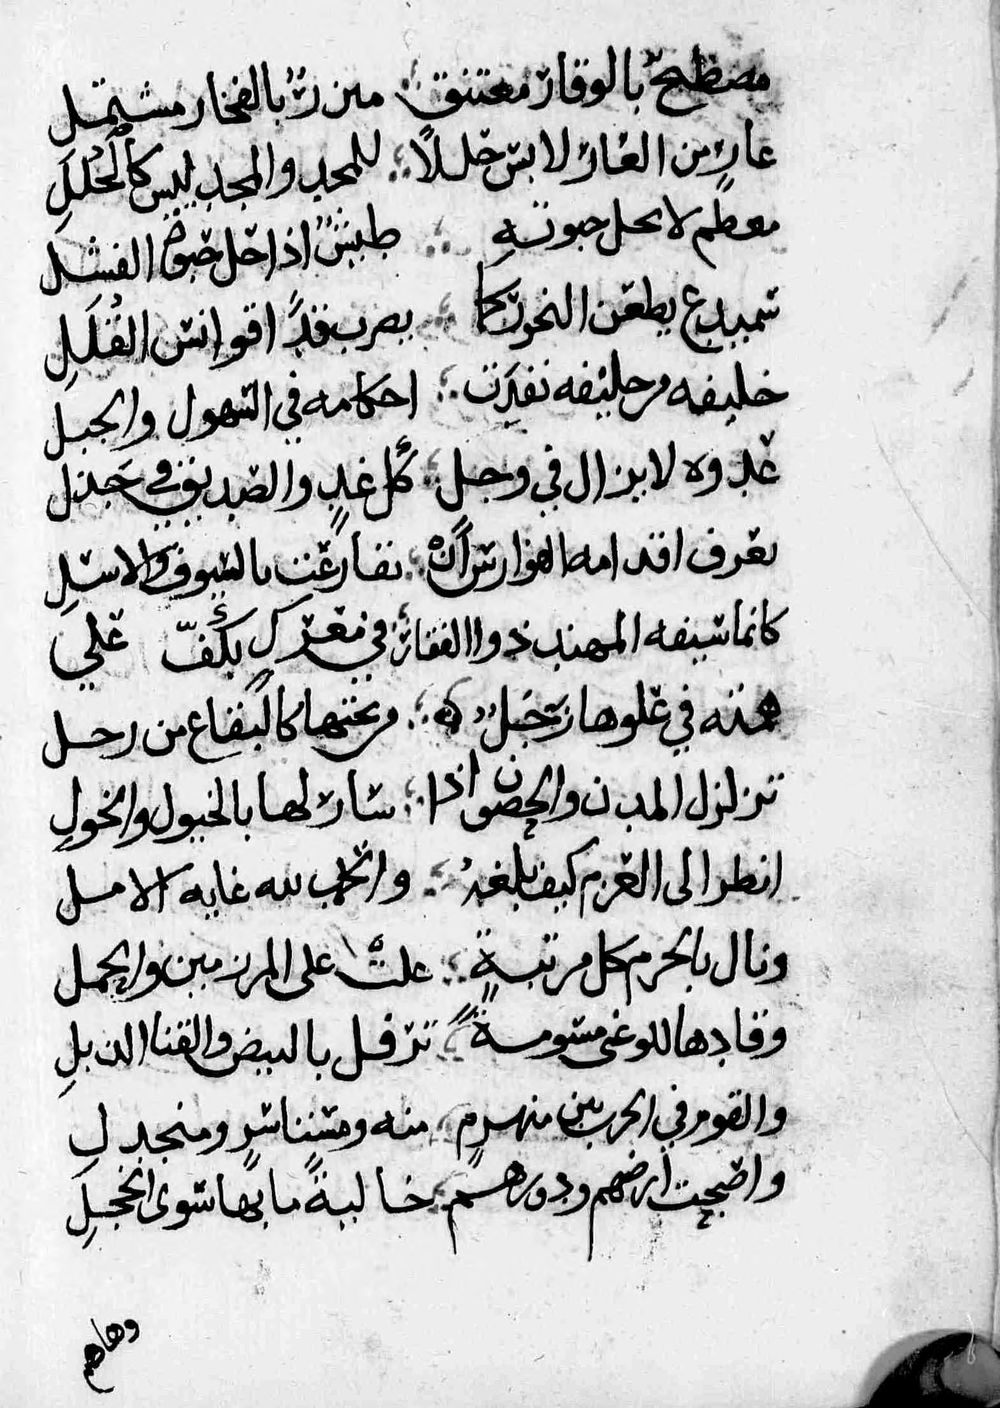 مصطبح بالوقار معتنق ؛ متزر بالفخار مشتمل
عارٍ من العار لابس حللًا ؛ للمجد والمجد ليس كالحُلَلِ
معظم لا يحل حبوته ؛ طيش اذا حل حبوة الفشل
سميدع يطعن النحور كما ؛ يضرب قدًا قوانس القُلَلِ
خليفه من خليفه نفذت ؛ احكامه في السهول والجبل
عدوه لا يزال في وجل ؛ كل غدٍ والصديق في جذل
تعرف اقدامه الفوارس ان ؛ تقارعت بالسيوف والاسل
كانما سيفه المهند ذو الفقار ؛ في معركٍ بكف علي
همته في علوها زحل ؛ من تحتها كالبقاع من زحل
تزلزل المدن والحصون اذا ؛ سار لها بالخيول والخول
انظر الى العزم كيف بلغه ؛ والحرب لله غايه الامل
ونال بالحزم كل مرتبةٍ ؛ علت على المرزمين والحمل
وقادها للوغى مسومةً ؛ ترفل بالبيض والقنا الذبل
والقوم في الحرب بين منهزم ؛ منه ومستاسرٍ ومنجدل
واصبحت ارضهم ودورهم ؛ خاليةً ما بها سوى الحجل
وهاهم